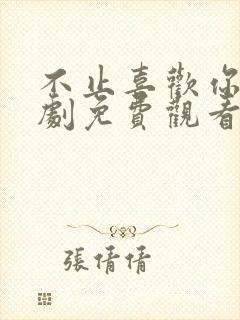 不止喜歡你
劇免費觀看
張倩倩